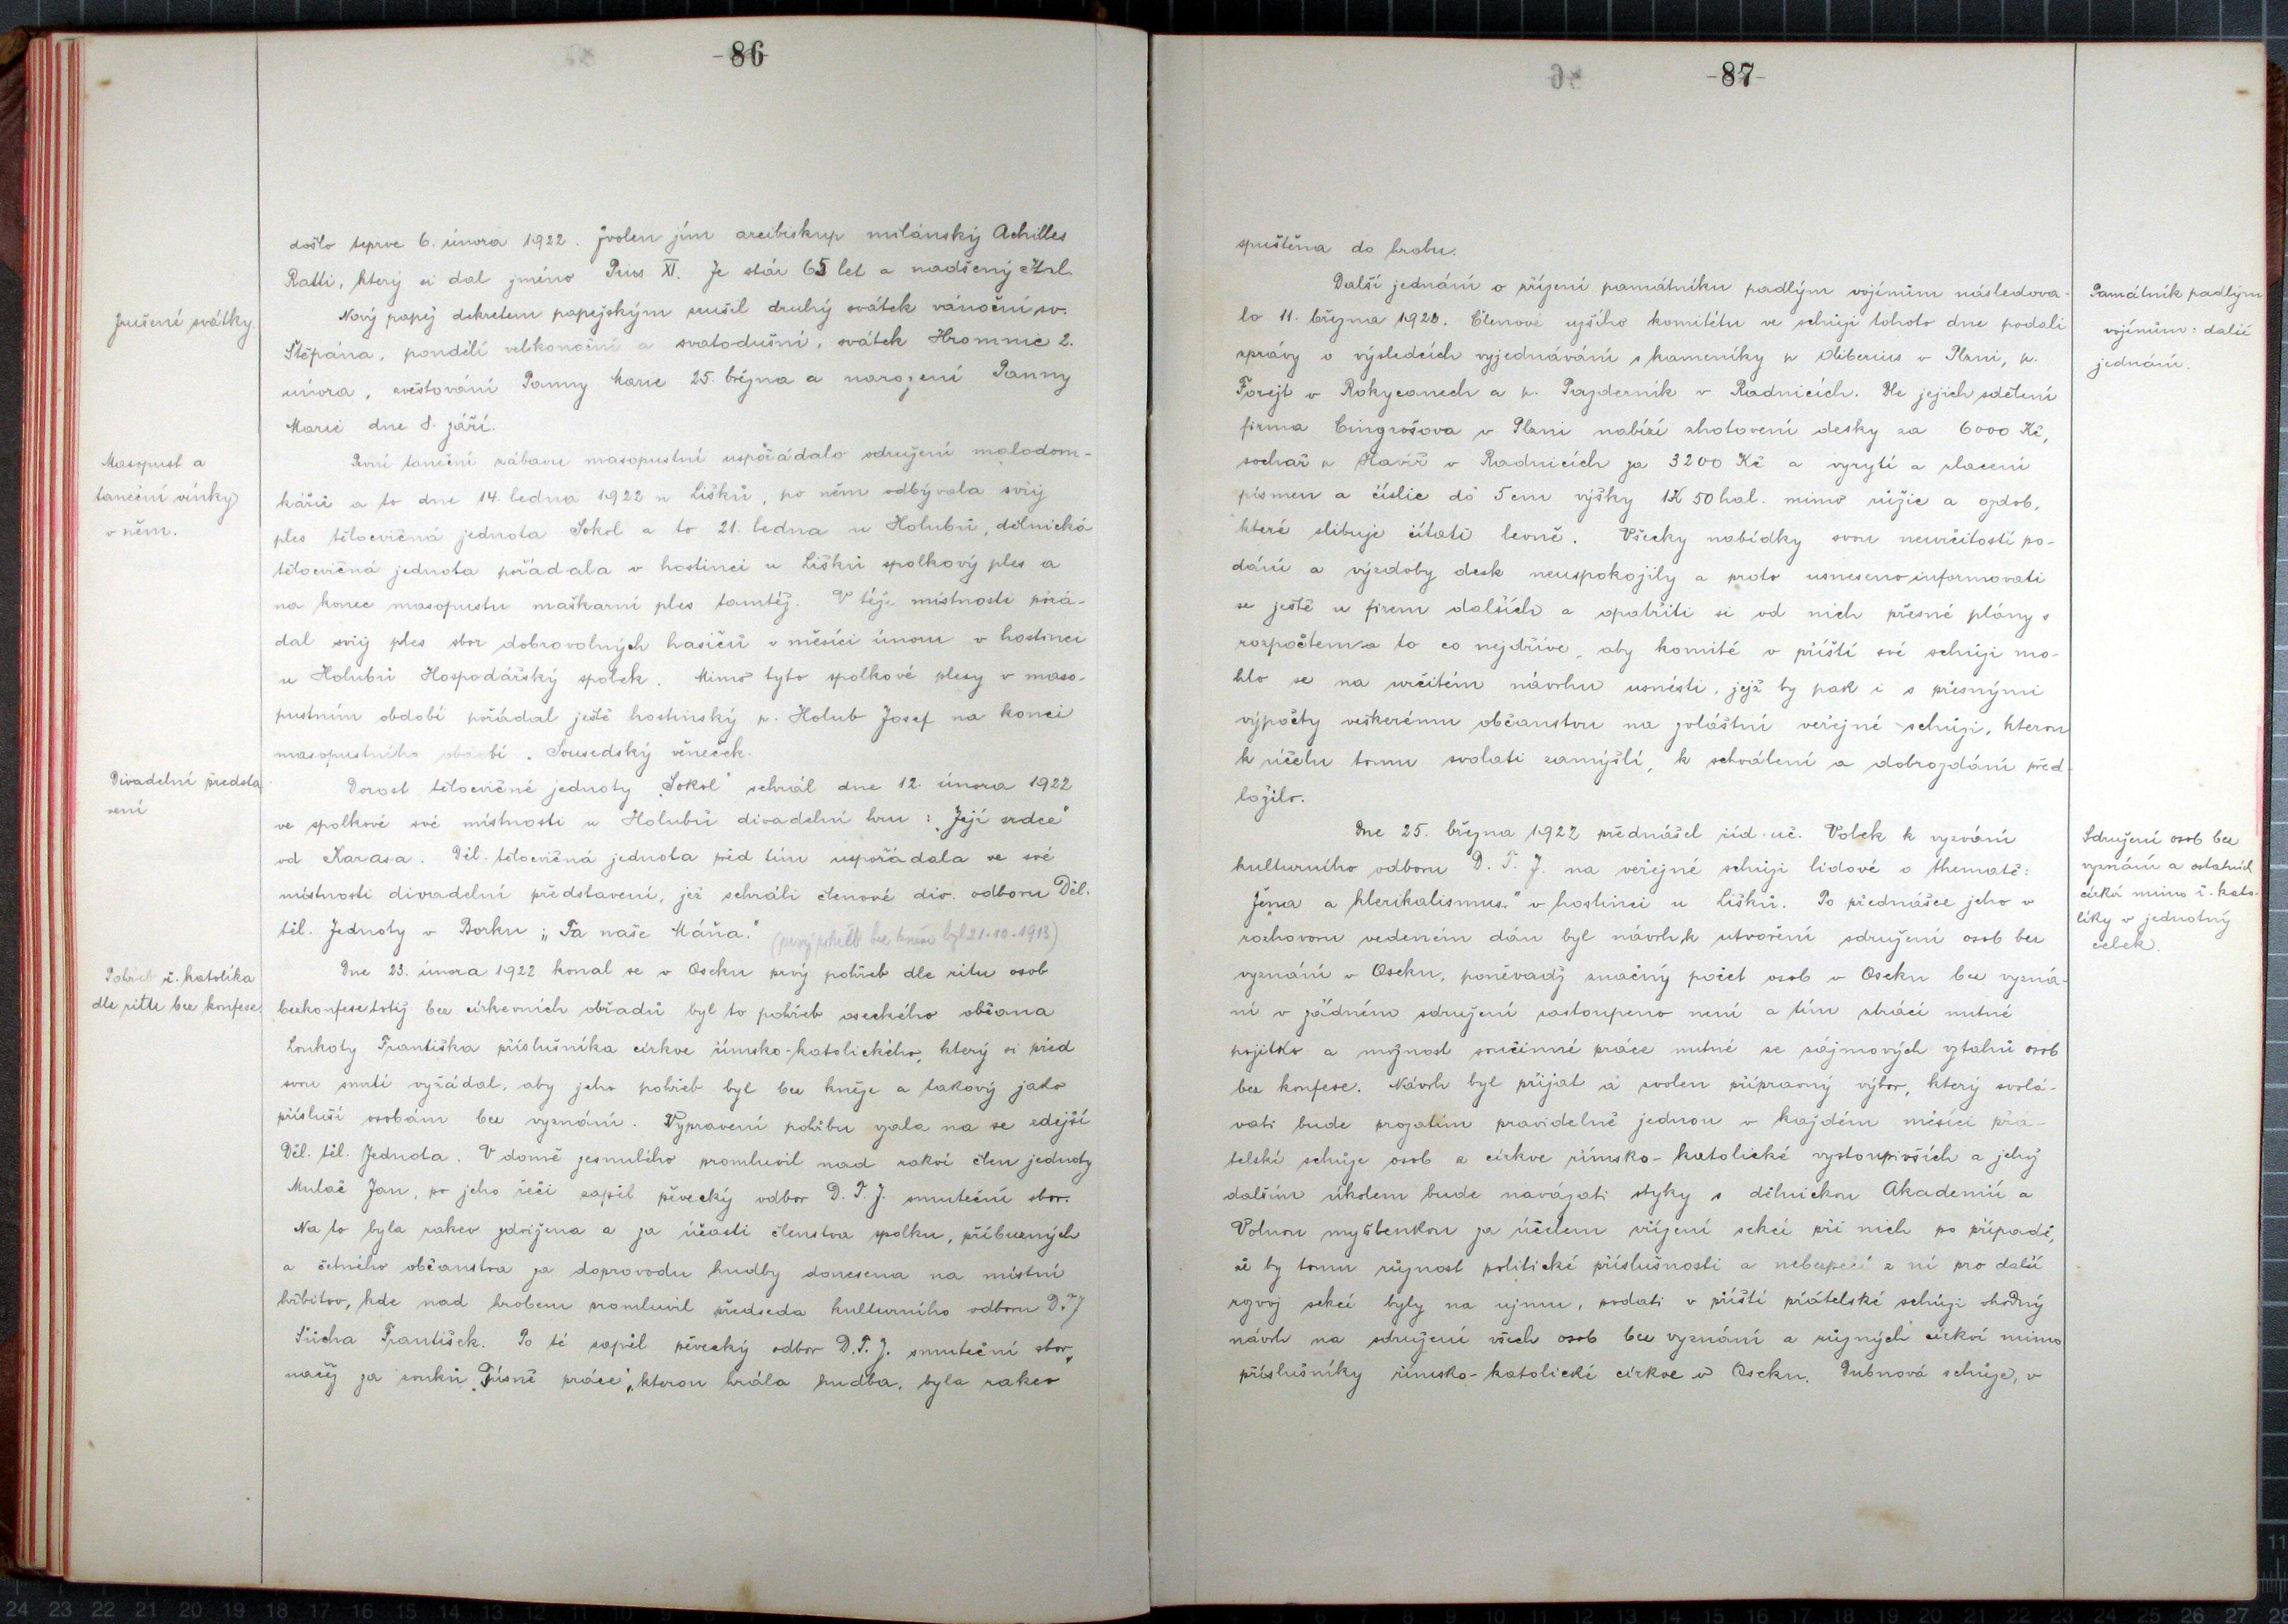 -86-
došlo teprve 6. února 1922. Zvolen jím arcibiskup milánský Achilles
Ratti, který si dal jméno Pius XI. Je stár 65 let a nadšený Ital.
Zrušené svátky.
Nový papež dekretem papežským zrušil druhý svátek vánoční sv.
Štěpána, pondělí velikonoční a svatodušní, svátek Hromnic 2.
února, zvěstování Panny Marie 25. března a narození Panny
Marie dne 8. září.
Masopust a
taneční vínky
v něm.
První taneční zábavu masopustní uspořádalo odružení malodom-
kářů a to dne 14. ledna 1922 u Lišků, po něm odbývala svůj
ples tělocvičná jednota Sokol a to 21. ledna u Holubů, dělnická
tělocvičná jednota pořádala v hostinci u Lišků spolkový ples a
na konec masopustu maškarní ples tamtéž. V téže místnosti pořá-
dal svůj ples sbor dobrovolných hasičů v měsíci únoru v hostinci
u Holubů Hospodářský spolek. Mimo tyto spolkové plesy v maso-
pustním období pořádal ještě hostinský p. Holub Josef na konci
masopustního období. Sousedský věneček.
Divadelní předsta
vení
Dorost tělocvičné jednoty „Sokol" sehrál dne 12. února 1922
ve spolkové své místnosti u Holubů divadelní hru: „Její srdce"
od Karasa. Děl. tělocvičná jednota před tím uspořádala ve své
místnosti divadelní představení, jež sehráli členové div. odboru Děl.
těl. Jednoty v Borku: „Ta naše Máňa." (prvý pohřeb bez kněze byl 21.10.1913)
Pohřeb ř. katolíka
dle ritu bez konfese.
Dne 23. února 1922 konal se v Oseku prvý pohřeb dle ritu osob
bezkonfese totiž bez církevních obřadů byl to pohřeb oseckého občana
Louhoty Františka příslušníka církve římsko-katolického, který si před
svou smrtí vyžádal, aby jeho pohřeb byl bez kněze a takový jako
přísluší osobám bez vyznání. Vypravení pohřbu vzala na se zdejší
Děl. těl. Jednota. V domě zesnulého promluvil nad rakví člen jednoty
Mulač Jan, po jeho řeči zapěl pěvecký odbor D. T. J. smuteční sbor.
Na to byla rakev zdvižena a za účasti členstva spolku, příbuzných
a četného občanstva za doprovodu hudby donesena na místní
hřbitov, kde nad hrobem promluvil předseda kulturního odboru D.T.J
Sücha František. Po té zapěl pěvecký odbor D.T.J. smuteční sbor,
načež za zvuků „Písně práce", kterou hrála hudba, byla rakev
-87-
spuštěna do hrobu.
Památník padlým
vojínům: další
jednání.
Další jednání o zřízení památníku padlým vojínům následova-
lo 11. března 1922. Členové užšího komitétu ve schůzi tohoto dne podali
zprávy o výsledcích vyjednávání s kameníky p. Oliberius v Plzni, p.
Forejt v Rokycanech a p. Pazderník v Radnicích. Dle jejich sdělení
firma Cingrošova v Plzni nabízí zhotovení desky za 6000 Kč,
sochař p. Havíř v Radnicích za 3200 Kč a vyrytí a zlacení
písmen a číslic do 5cm výšky 1K 50 hal. mimo růžic a ozdob,
které slibuje čítati levně. Všecky nabídky svou neurčitostí po-
dání a výzdoby desk neuspokojily a proto usneseno informovati
se ještě u firem dalších a opatřiti si od nich přesné plány s
rozpočtem a to co nejdříve, aby komité v příští své schůzi mo-
hlo se na určitém návrhu usnésti, jejž by pak i s přesnými
výpočty veškerému občanstvu na zvláštní veřejné schůzi, kterou
k účelu tomu svolati zamýšlí, k schválení a dobrozdání před-
ložilo.
Sdružení osob bez
vyznání a ostatních
církví mimo ř.-kato-
líky v jednotný
celek.
Dne 25. března 1922 přednášel říd. uč. Volek k vyzvání
kulturního odboru D. T. J. na veřejné schůzi lidové o thematě:
„Žena a klerikalismus." v hostinci u Lišků. Po přednášce jeho v
rozhovoru vedeném dán byl návrh k utvoření sdružení osob bez
vyznání v Oseku, poněvadž značný počet osob v Oseku bez vyzná-
ní v žádném sdružení zastoupeno není a tím ztrácí nutné
pojítko a možnost součinné práce nutné ze zájmových vztahů osob
bez konfese. Návrh byl přijat a zvolen přípravný výbor, který svolá-
vati bude prozatím pravidelně jednou v každém měsíci přá-
telské schůze osob z církve římsko-katolické vystoupivších a jehož
dalším úkolem bude navázati styky s dělnickou Akademií a
Volnou myšlenkou za účelem zřízení sekcí při nich po případě,
že by tomu různost politické příslušnosti a nebezpečí z ní pro další
rozvoj sekcí byly na ujmu, podati v příští přátelské schůzi vhodný
návrh na sdružení všech osob bez vyznání a různých církví mimo
příslušníky římsko-katolické církve v Oseku. Dubnová schůze, v